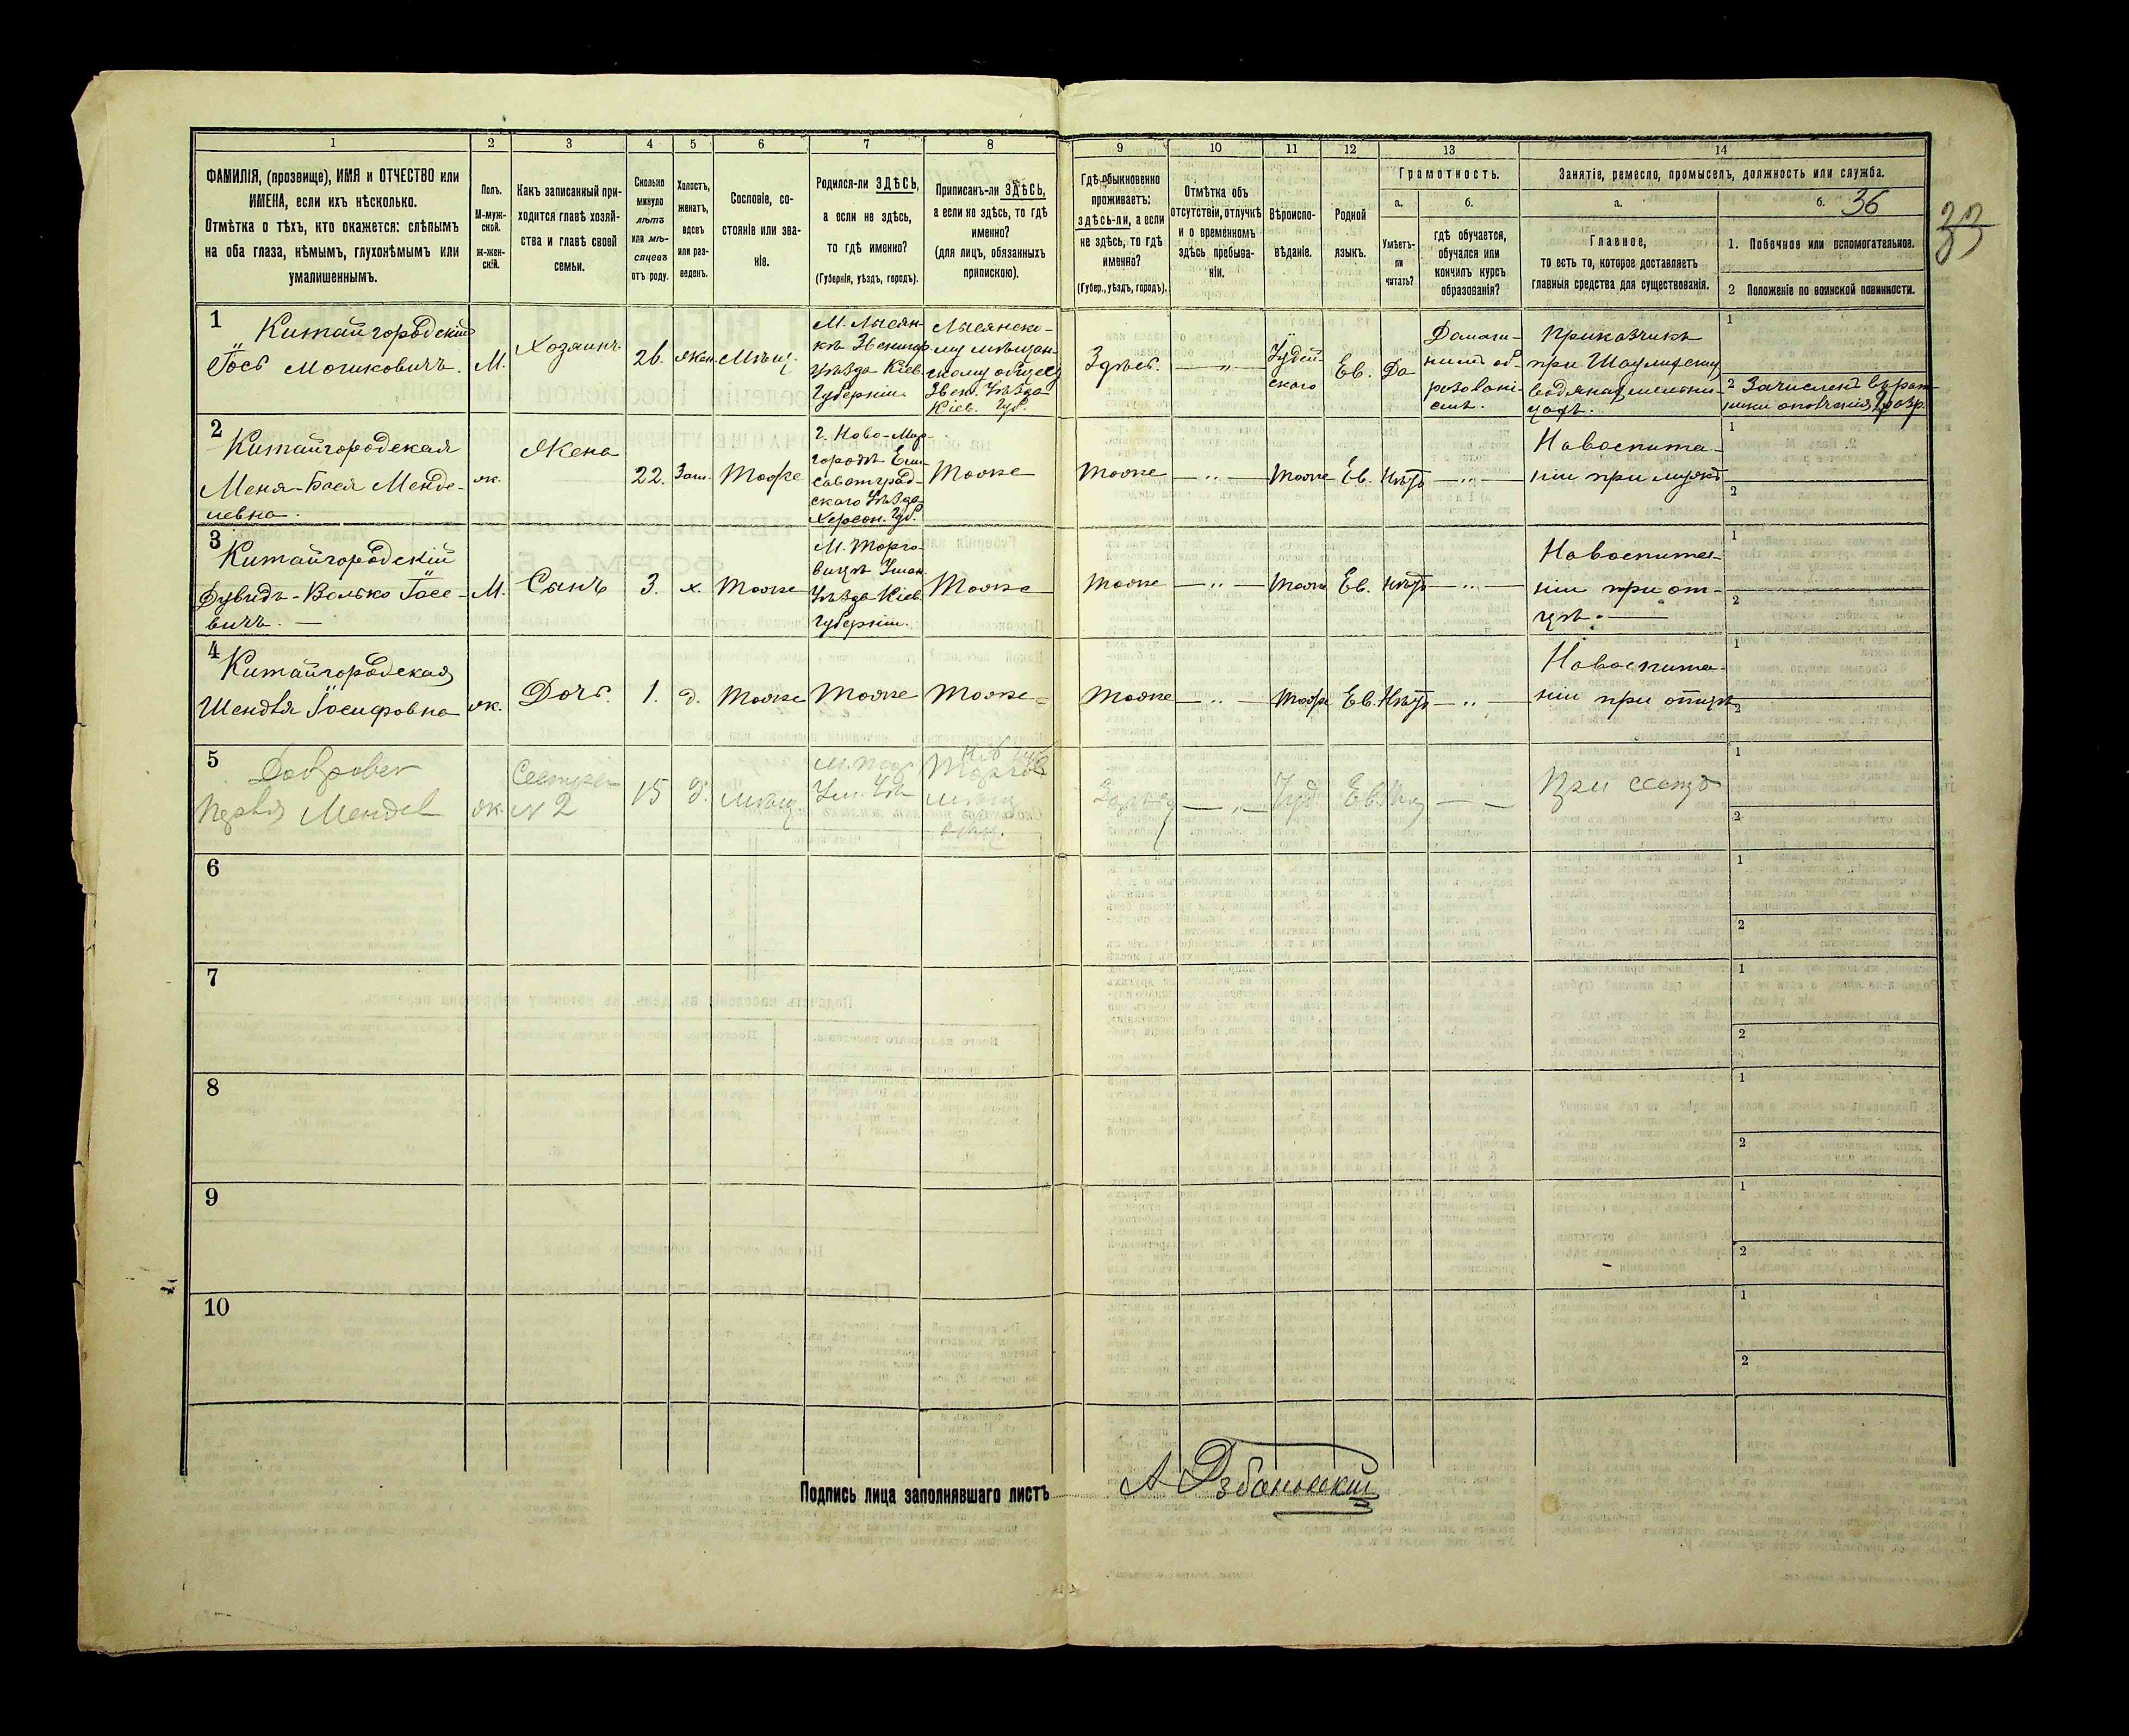 1 2 3 4 5 6 7 8 9 10 11 12 13 14
ФАМИЛІЯ, (прозвище), ИМЯ и ОТЧЕСТВО или
ИМЕНА, если ихъ нѣсколько.
Отмѣтка о тѣхъ, кто окажется: слѣпымъ
на оба глаза, нѣмымъ, глухонѣмымъ или
умалишеннымъ.
Полъ.
М-муж-
ской.
Ж-жен-
скій.
Какъ записанный при-
ходится главѣ хозяй-
ства и главѣ своей
семьи.
Сколько
минуло
лѣтъ
или мѣ-
сяцевъ
отъ роду.
Холостъ,
женатъ,
вдовъ
или раз-
веденъ.
Сословіе, со-
стояніе или зва-
ніе.
Родился-ли ЗДѢСЬ,
а если не здѣсь,
то гдѣ именно?
(Губернія, уѣздъ, городъ).
Приписанъ-ли ЗДѢСЬ,
а если не здѣсь, то гдѣ
именно?
(для лицъ, обязанныхъ
припискою).
Гдѣ обыкновенно
проживаетъ:
здѣсь-ли, а если
не здѣсь, то гдѣ
именно?
(Губер., уѣздъ, городъ).
Отмѣтка объ
отсутствіи, отлучкѣ
и о временномъ
здѣсь пребыва-
ніи.
Вѣроиспо-
вѣданіе.
Родной
языкъ.
Грамотность.
а.
Умѣетъ-
ли
читать?
б.
гдѣ обучается,
обучался или
кончилъ курсъ
образованія?
Занятіе, ремесло, промыселъ, должность или служба.
а.
Главное,
то есть то, которое доставляетъ
главныя средства для существованія.
б. 36
1. Побочное или вспомогательное.
2 Положеніе по воинской повинности.
33
1 Китайгородскій
Іось Мошковичъ.
М.
Хозяинъ
26.
Жен.
Мѣщ.
М. Лысян-
кѣ Звенигор
Уѣзда Кіев
Губерніи
Лысянско-
му мѣщан-
скому общес
Звен. Уѣзда
Кіев. Губ.
Здѣсь.
— „ —
Іудей-
скаго
Ев.
Да
Домаш-
нимъ об-
разовані-
емъ.
Приказчикъ
при
1
2 Зачисленъ въ рат-
ники ополченія
2 Китайгородская
Меня-Бася Менде-
левна.
ж.
Жена
22.
Зам.
Тоже
г. Ново-Мир-
городѣ Ели-
саветград-
скаго Уѣзда
Херсон. Губ.
Тоже
Тоже
— „ —
Тоже
Ев.
Нѣтъ
— „ —
На воспита-
ніи при мужѣ
1
2
3 Китайгородскій
Дувидъ-Волько Іосе-
вичъ. —
М.
Сынъ
3.
х.
Тоже
М. Торго-
вицѣ Уман.
Уѣзда Кіев
Губерніи.
Тоже
Тоже
— „ —
Тоже
Ев.
Нѣтъ
— „ —
На воспита-
ніи при от-
цѣ. —
1
2
4 Китайгородская
Шендля Іосифовна
ж.
Дочь.
1.
д.
Тоже
Тоже
Тоже
Тоже
— „ —
Тоже
Ев.
Нѣтъ
— „ —
На воспита-
ніи при отцѣ
1
2
5
Мендел
ж.
Сестра
№ 2
15
д.
мѣщ.
Іуд.
Ев
При сестр
1
2
6
1
2
7
1
2
8
1
2
9
1
2
10
1
2
Подпись лица заполнявшаго листъ